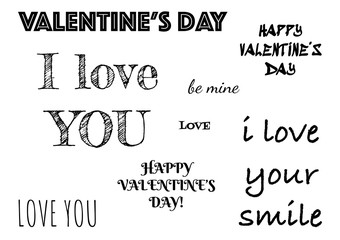 VALENTINE'S DAY
HAPPY
VALENTINE'S
DAY
I love
YOU
be mine
LovE
i love
your
smile
HAPPY
VALENTINE'S
DAY!
LOVE YOU